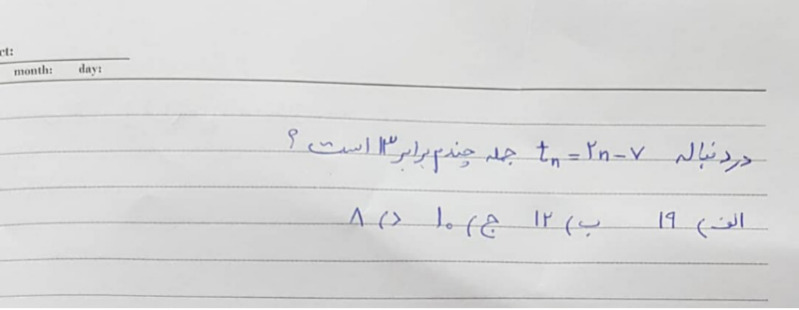 ct:
month: day:
در دنباله tₙ = ۲n − ۷ جمله چندم برابر ۱۳ است ؟
الف) ۱۹ ب) ۱۲ ج) ۱۰ د) ۸